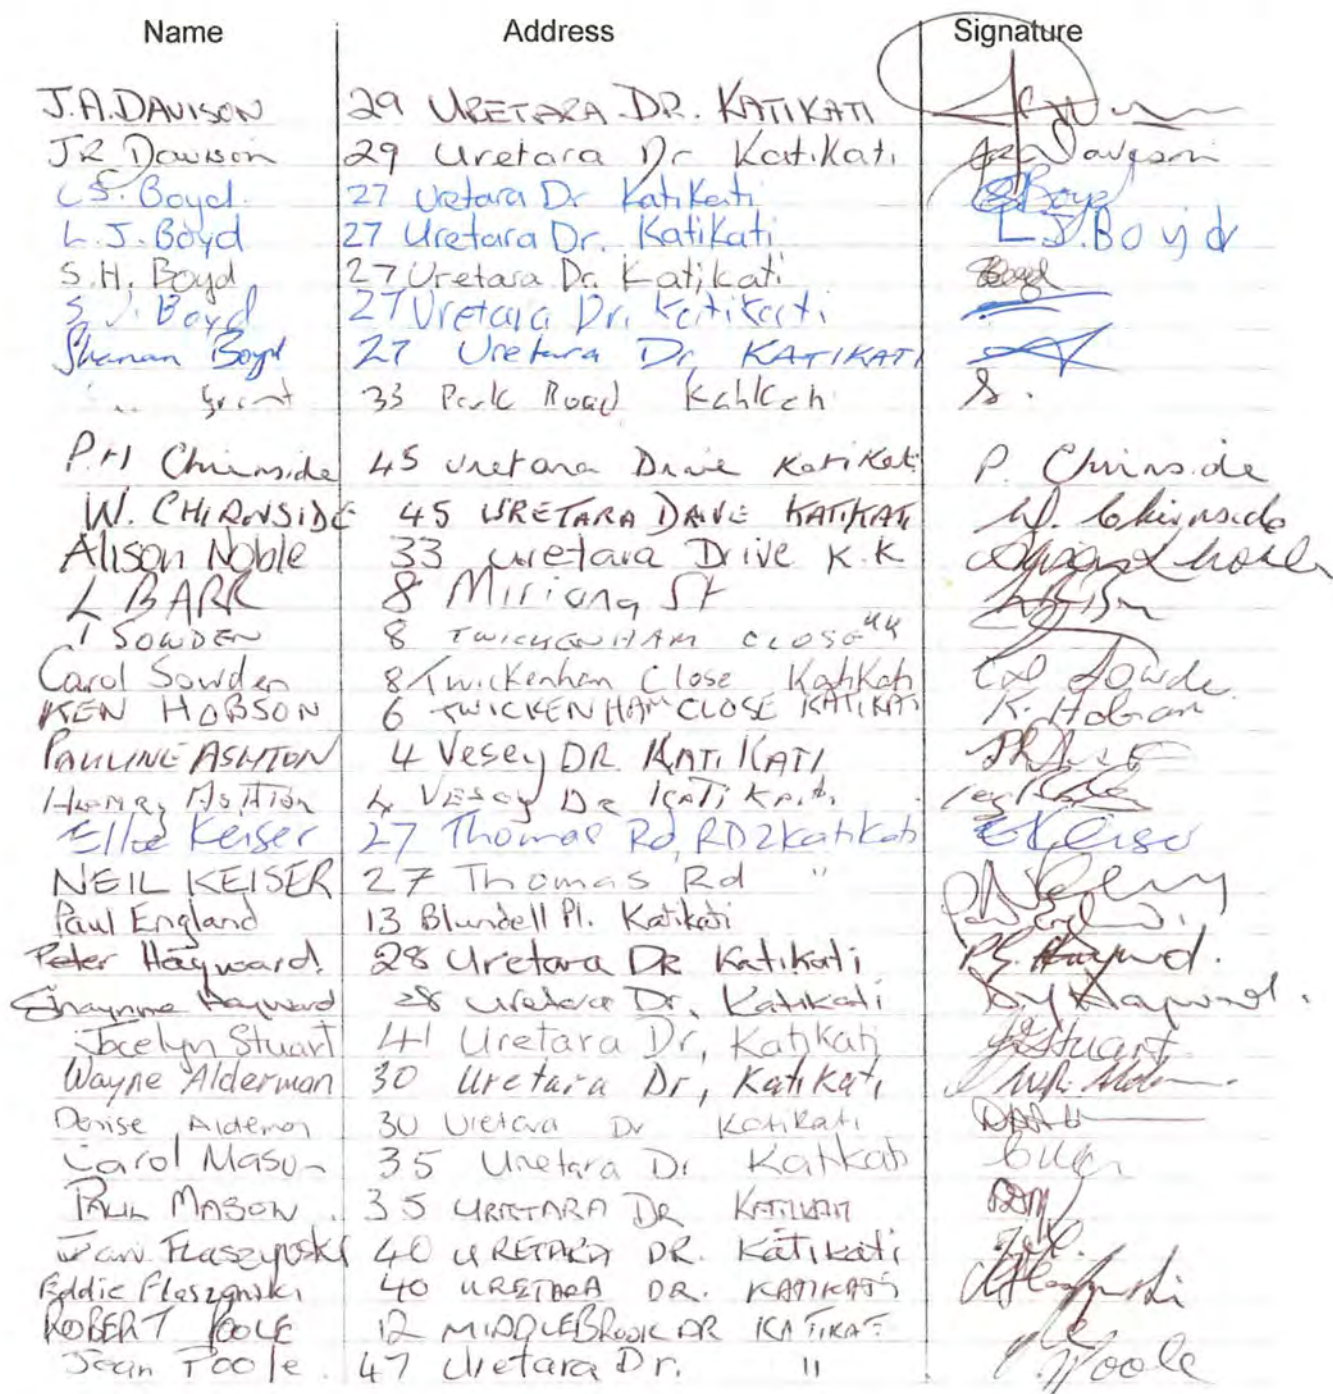 Name Address Signature
J.A. DAVISON 29 URETARA DR. KATIKATI
JR Davison 29 Uretara Dr Katikati JR Davison
L.S. Boyd. 27 Uretara Dr Katikati Boyd
L.J. Boyd 27 Uretara Dr. Katikati L.J. Boyd
S.H. Boyd 27 Uretara Dr. Katikati Boyd
S.J. Boyd 27 Uretara Dr. Katikati
Shanan Boyd 27 Uretara Dr, KATIKATI
Grant 33 Park Road Katikati S.
P.H Chirnside 45 Uretara Drive Katikati P. Chirnside
W. CHIRNSIDE 45 URETARA DRIVE KATIKATI W. Chirnside
Alison Noble 33 Uretara Drive K.K
L BARR 8 Miriana St
I SOWDEN 8 TWICKENHAM CLOSE KK
Carol Sowden 8 Twickenham Close Katikati
KEN HOBSON 6 TWICKENHAM CLOSE KATIKATI K. Hobson
PAULINE ASHTON 4 Vesey DR KATIKATI
Henry Ashton 4 VESEY DR KATIKATI
Keiser 27 Thomas Rd, RD2 Katikati E Keiser
NEIL KEISER 27 Thomas Rd "
Paul England 13 Blundell Pl. Katikati
Peter Hayward. 28 Uretara DR Katikati
Hayward 28 Uretara Dr, Katikati
Jocelyn Stuart 41 Uretara Dr, Katikati Stuart
Wayne Alderman 30 Uretara Dr, Katikati
Denise Alderman 30 Uretara Dr Katikati
Carol Mason 35 Uretara Dr Katikati
PAUL MASON 35 URETARA DR KATIKATI
Flaszynski 40 URETARA DR. Katikati
Eddie Flaszynski 40 URETARA DR. KATIKATI
ROBERT POOLE 12 MIDDLEBROOK DR KATIKATI
Jean Poole. 47 Uretara Dr. " Poole